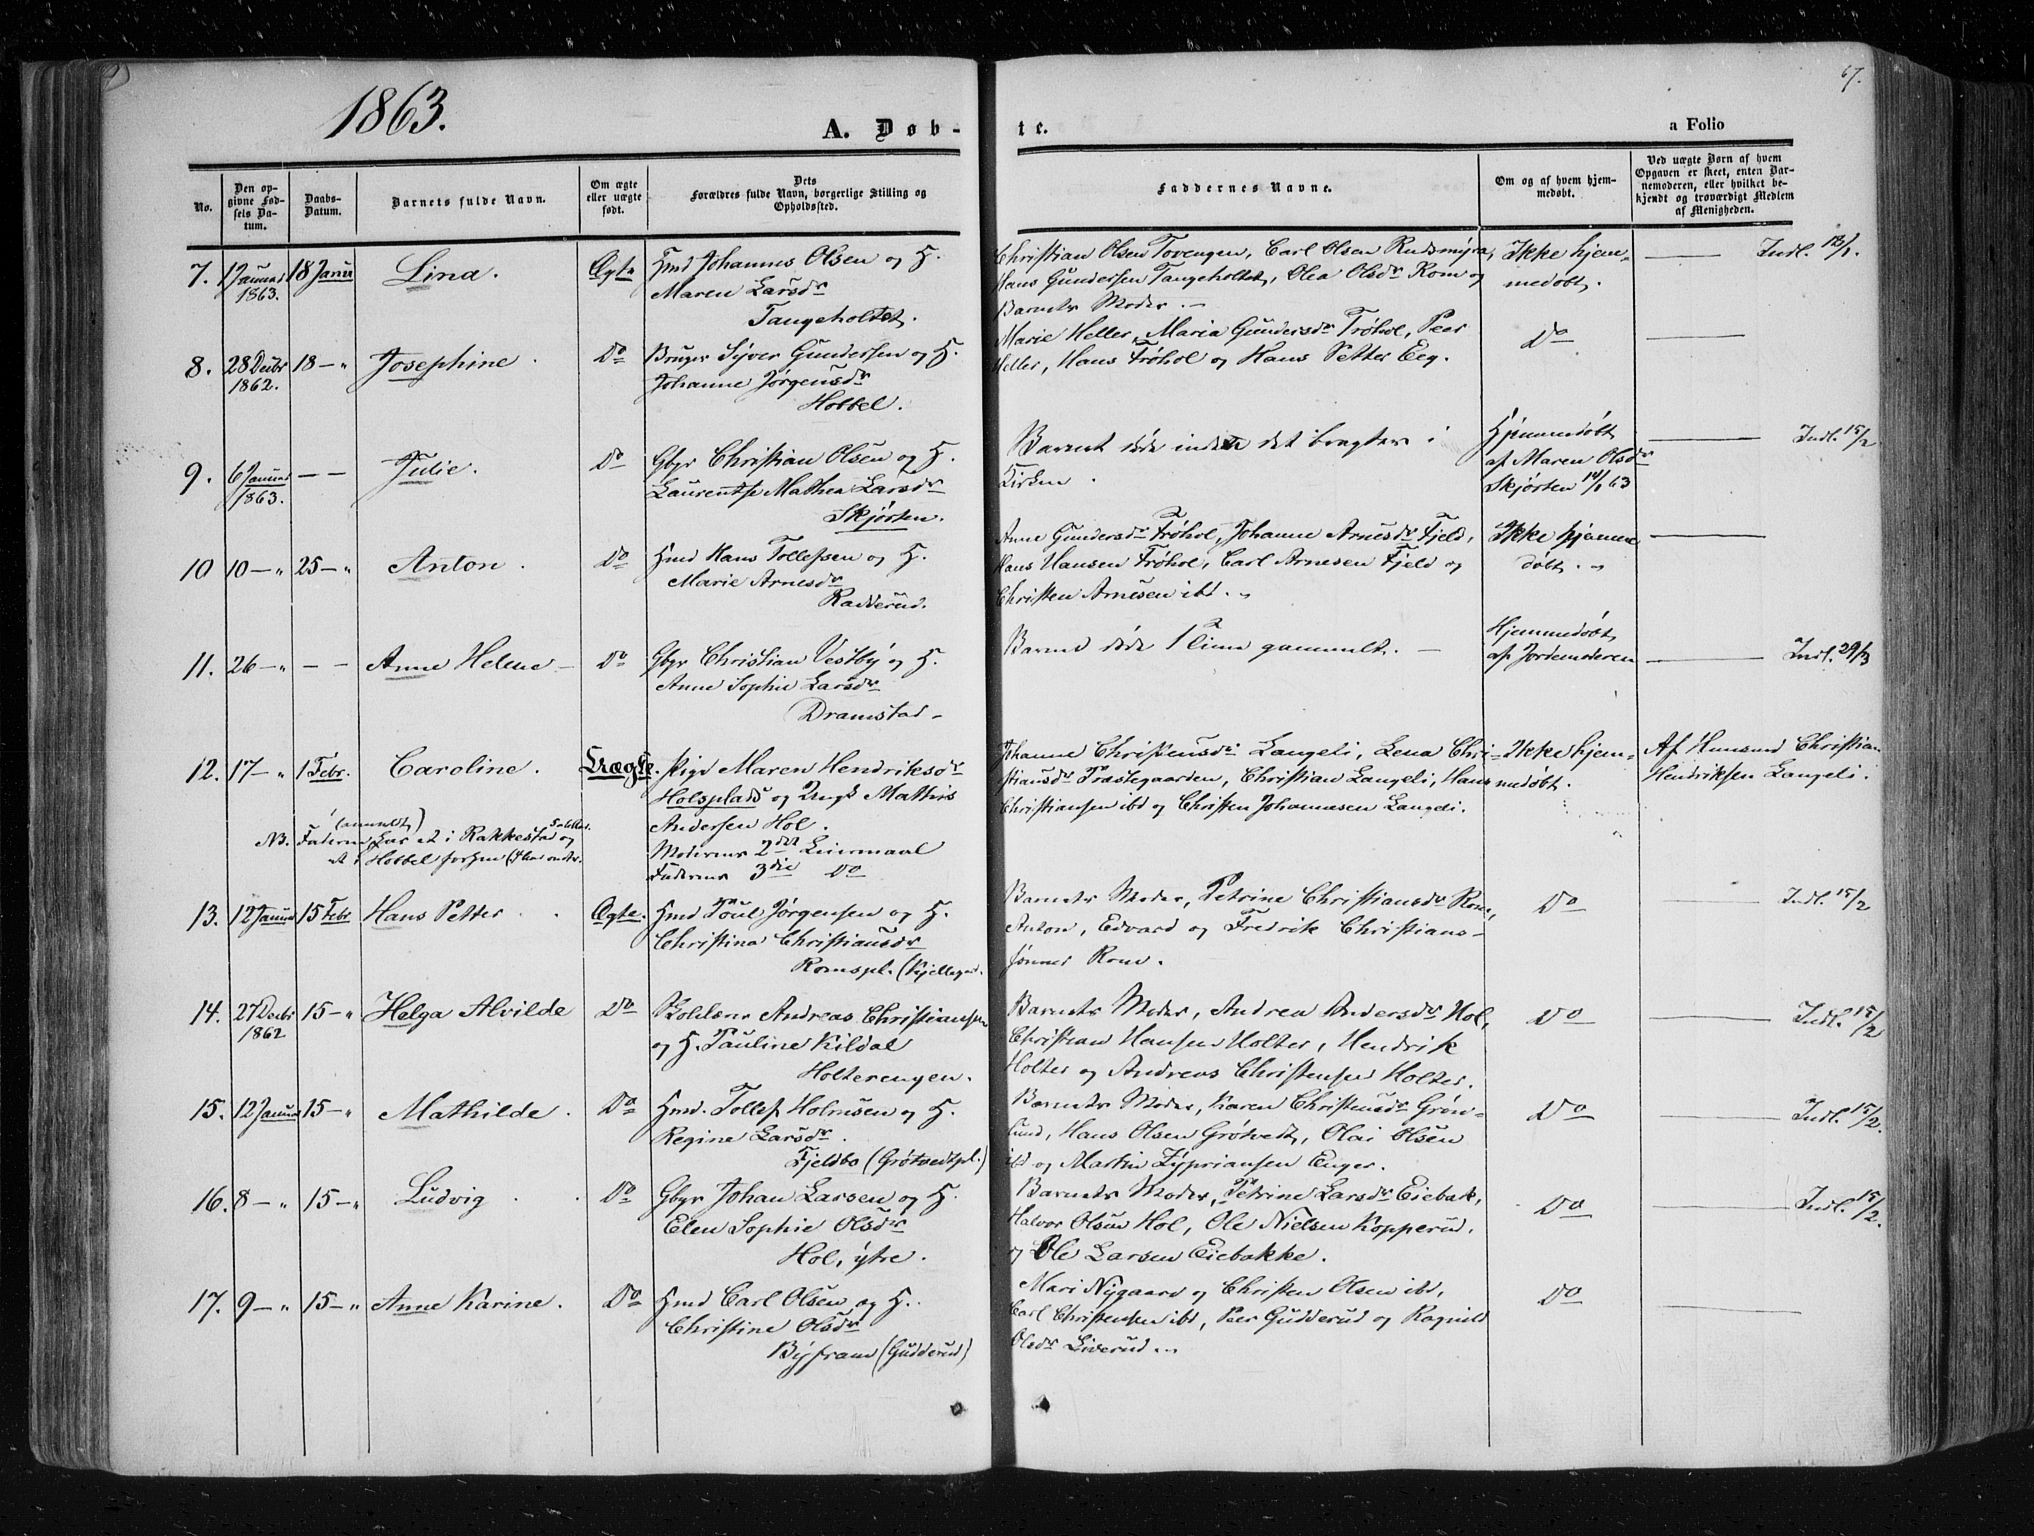 67.
1863.
A. Døb-
te.
a Folio
No.
Den op-
givne Fød-
sels Da-
tum.
Daabs-
Datum.
Barnets fulde Navn.
Om ægte
eller uægte
født.
Dets
Forældres fulde Navn, borgerlige Stilling og
Opholdssted.
Faddernes Navne.
Om og af hvem hjem-
medøbt.
Ved uægte Børn af hvem
Opgaven er skeet, enten Bar-
nemoderen, eller hvilket be-
kjendt og troværdigt Medlem
af Menigheden.
7. 1 Januar 18 Janu Lina. Ægte Hmd Johannes Olsen og H.
1863.
Maren Larsdr
Tangeholtet.
Christian Olsen Tovengen, Carl Olsen Rudsmyra,
Hans Gundersen Tangeholtet, Olea Olsdr Rom og
Barnets Moder. –
Ikke hjem-
medøbt.
Indl. 18/1.
8. 28 Decbr 18 – „ Josephine. Do Bruger Syver Gundersen og H.
1862.
Johanne Jørgensdr
Hobbel.
Marie Heller, Maria Gundersdr Trøhol, Peer
Heller, Hans Frøhol og Hans Petter Eeg.
Do
9. 6 Januar – – Julie. Do Gbgr Christian Olsen og H.
1863.
Laurentse Mathea Larsdr
Skjørten.
Barnet døde inden det bragtes i
Kirken.
Hjemmedøbt
af Maren Olsdr
Skjørten 14/1 63
Indl. 15/2
10 10 – „ 25 – „ Anton. Do Hmd Hans Tollefsen og H.
Marie Arnesdr
Radderud.
Anne Gundersdr Frøhol, Johanne Arnesdr Fjeld,
Hans Hansen Frøhol, Carl Arnesen Fjeld og
Christen Arnesen ibd. „
Ikke hjemme
døbt. „
11. 26 – „ – – Anne Helene – Do Gbgr Christian Vestby og H.
Anne Sophie Larsdr
Dramstad –
Barnet døde 1 Time gammelt. –
Hjemmedøbt
af Jordemoderen
Indl. 29/3
12. 17 – „ 1 Febr. Caroline. Uægte. Pige Maren Hendriksdr
Holsplads og Ungk Mathis
Andersen Hol.
Moderens 2det Leiermaal
Faderens 3die Do
(anmeldt)
NB. Faderen har et i Rakkestad og
et i Hobbel forhen
Johanne Christensdr Langeli, Lena Chri-
stiansdr Præstegaarden, Christian Langeli, Hans
Christiansen ibd og Christen Johannesen Langeli.
Ikke hjem-
medøbt.
Af Husmand Christian
Hendriksen Langeli.
13. 12 Januar 15 Febr Hans Petter. Ægte. Hmd Poul Jørgensen og H.
Christina Christiansdr
Romspl. (Kjellegrd.
Barnets Moder, Petrine Christiansdr Rom,
Anton, Edvard og Fredrik Christians-
sønner Rom.
Do
Indl. 15/2
14. 27 Decbr 15 – „ Helga Alvilde Do Andreas Christiansen
1862
og H. Pauline Kildal
Holterengen.
Barnets Moder, Andrea Andersdr Hol,
Christian Hansen Holter, Hendrik
Holter og Andreas Christensen Holter.
Do
Indl. 15/2
15. 12 Januar 15 – „ Mathilde. Do Hmd. Tollef Holmsen og H.
Regine Larsdr.
Fjeldbo (Grøtvedtpl.)
Barnets Moder, Karen Christensdr Grøn-
lund, Hans Olsen Grøtvedt, Olai Olsen
ibd og Martin Zypriansen Enger.
Do
Indl. 15/2.
16. 8 – „ 15 – „ Ludvig. Do Gbgr Johan Larsen og H.
Elen Sophie Olsdr
Hol, ytre.
Barnets Moder, Petrine Larsdr Eiebak,
Halvor Olsen Hol, Ole Nielsen Kopperud.
og Ole Larsen Eiebakke.
Do
Indl. 15/2.
17. 9 – „ 15 – „ Anne Karine. Do Hmd Carl Olsen og H.
Christine Olsdr
Byfram (Gudderud)
Mari Nygaard og Christen Olsen ibd,
Carl Christensen ibd, Peer Gudderud og Ragnild
Olsdr Liverud. „
Do